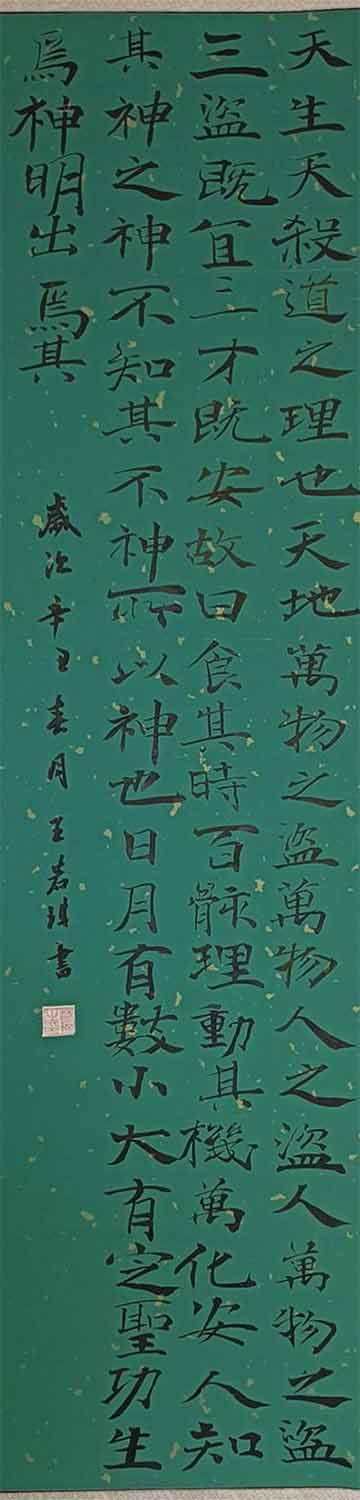 天生天殺道之理也天地萬物之盜萬物人之盜人萬物之盜
三盜既宜三才既安故曰食其時百骸理動其機萬化安人知
其神之神不知其不神所以神也日月有數小大有定聖功生
焉神明出焉其
歲次辛丑春月王書